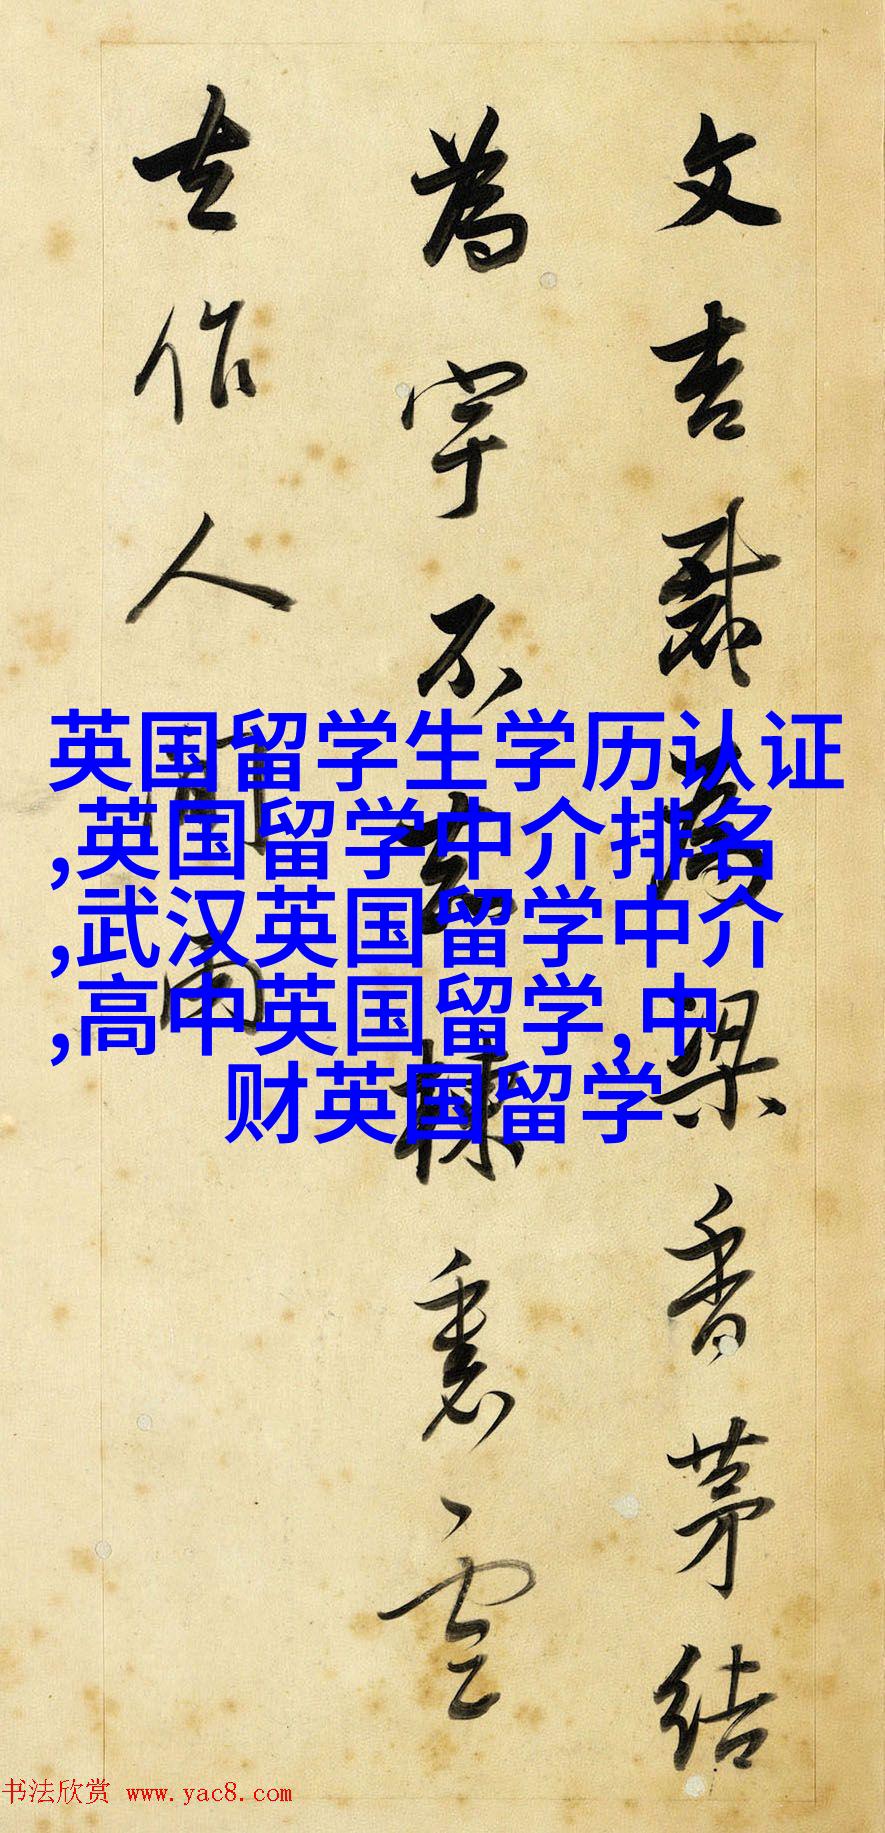 文杏裁為梁香茅結
為宇不知棟裏雲
去作人間雨
英国留学生学历认证
,英国留学中介排名
,武汉英国留学中介
,高中英国留学,中
财英国留学
书法欣赏 www.yac8.com